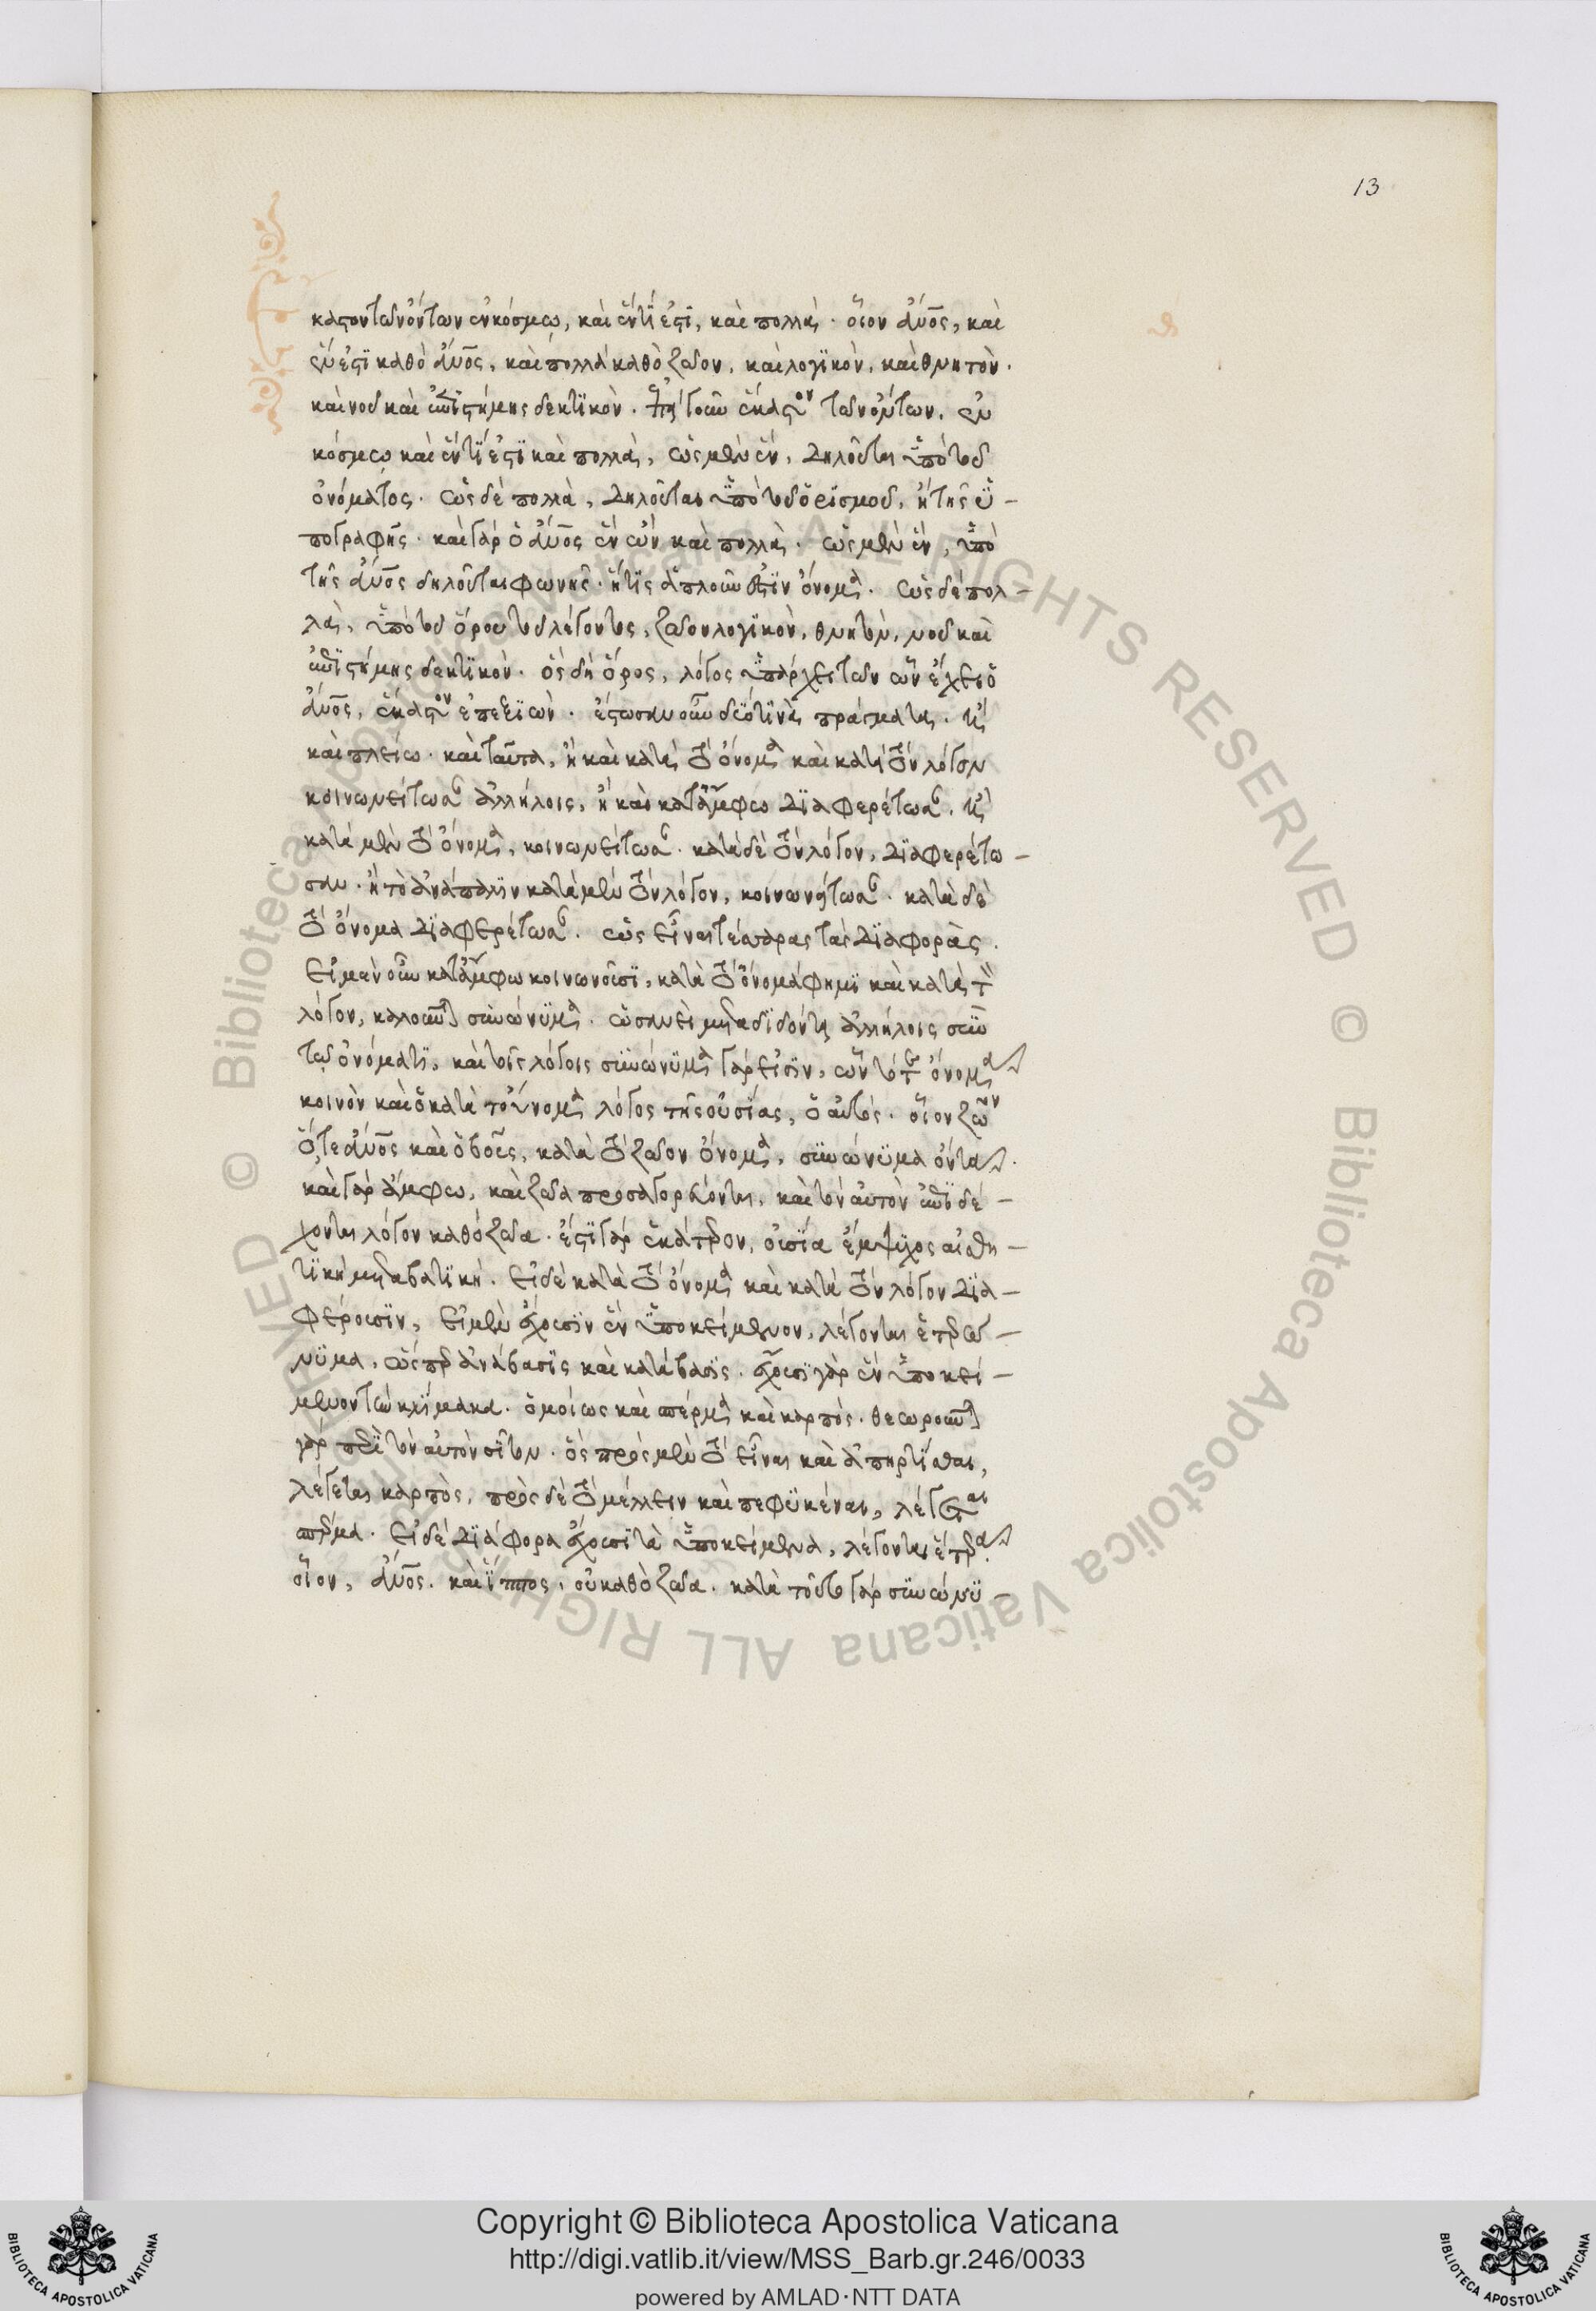 13
καστον τῶν ὄντων ἐν κόσμω, καὶ ἕν τί ἐστι, καὶ πολλά · οἷον ἄνος, καὶ
ἕν ἐστι καθὸ ἄνος, καὶ πολλὰ καθὸ ζῶον, καὶ λογικὸν, καὶ θνητὸν ·
καὶ νοῦ καὶ ἐπιστήμης δεκτικὸν · ἕκαστον τῶν ὄντων, ἐν
κόσμω καὶ ἕν τί ἐστι καὶ πολλὰ, ὡς μὲν ἕν, δηλοῦται ὑπὸ τοῦ
ὀνόματος · ὡς δὲ πολλὰ, δηλοῦται ὑπὸ τοῦ ὁρισμοῦ, ἢ τῆς ὑ -
πογραφῆς · καὶ γὰρ ὁ ἄνος ἓν ὢν καὶ πολλὰ · ὡς μὲν ἕν, ὑπὸ
τῆς ἄνος δηλοῦται φωνῆς · ἥτις ἁπλοῦν ἐστὶν ὄνομα · ὡς δὲ πολ -
λὰ, ὑπὸ τοῦ ὅρου τοῦ λέγοντος, ζῶον λογικὸν, θνητὸν, νοῦ καὶ
ἐπιστήμης δεκτικὸν · ὃς δὴ ὅρος, λόγος ὑπάρχει τῶν ὧν ἔχει ὁ
ἄνος, ἕκαστον ἐπεξιὼν · ἔστωσαν οὖν δύο τινὰ πράγματα · ἢ
καὶ πλείω · καὶ ταῦτα, ἢ καὶ κατὰ τὸ ὄνομα καὶ κατὰ τὸν λόγον
κοινωνείτωσαν ἀλλήλοις, ἢ καὶ κατάμφω διαφερέτωσαν, ἢ
κατὰ μὲν τὸ ὄνομα, κοινωνείτωσαν · κατὰ δὲ τὸν λόγον, διαφερέτω -
σαν · ἢ τὸ ἀνάπαλιν κατὰ μὲν τὸν λόγον, κοινωνήτωσαν · κατὰ δὲ
τὸ ὄνομα διαφερέτωσαν · ὡς εἶναι τέσσαρας τὰς διαφορὰς .
Εἰ μὲν οὖν κατάμφω κοινωνοῦσι, κατὰ τὸ ὄνομα φημὶ καὶ κατὰ τὸν
λόγον, καλοῦνται συνώνυμα · ὡσανεὶ μεταδιδόντα ἀλλήλοις σὺν
τῶ ὀνόματι, καὶ τοῖς λόγοις συνώνυμα γάρ εἰσιν, ὧν τό τε ὄνομα
κοινὸν καὶ ὁ κατὰ τοὔνομα λόγος τῆς οὐσίας, ὁ αὐτός · οἷον ζῶον
ὅ τε ἄνος καὶ ὁ βοῦς, κατὰ τὸ ζῶον ὄνομα, συνώνυμα ὄντα .
καὶ γὰρ ἄμφω, καὶ ζῶα προσαγορεύονται, καὶ τὸν αὐτὸν ἐπιδέ -
χονται λόγον καθὸ ζῶα · ἔστι γὰρ ἑκάτερον, οὐσία ἔμψυχος αἰσθη -
τικὴ μεταβατικὴ · Εἰ δὲ κατὰ τὸ ὄνομα καὶ κατὰ τὸν λόγον δια -
φέρουσιν, εἰ μὲν ἔχουσιν ἓν ὑποκείμενον, λέγονται ἑτερώ -
νυμα, ὥσπερ ἀνάβασις καὶ κατάβασις · ἔχουσι γὰρ ἓν ὑποκεί -
μενον τὴν κλίμακα · ὁμοίως καὶ σπέρμα καὶ καρπὸς · θεωροῦνται
γὰρ περὶ τὸν αὐτὸν σῖτον · ὃς πρὸς μὲν τὸ εἶναι καὶ ἀπηρτίσθαι,
λέγεται καρπὸς, πρὸς δὲ τὸ μέλλειν καὶ πεφυκέναι, λέγεται
σπέρμα · Εἰ δὲ διάφορα ἔχουσι τὰ ὑποκείμενα, λέγονται ἕτερα
οἷον, ἄνος · καὶ ἵππος, οὐ καθὸ ζῶα · κατὰ τοῦτο γὰρ συνώνυ -
Copyright © Biblioteca Apostolica Vaticana
http://digi.vatlib.it/view/MSS_Barb.gr.246/0033
powered by AMLAD·NTT DATA